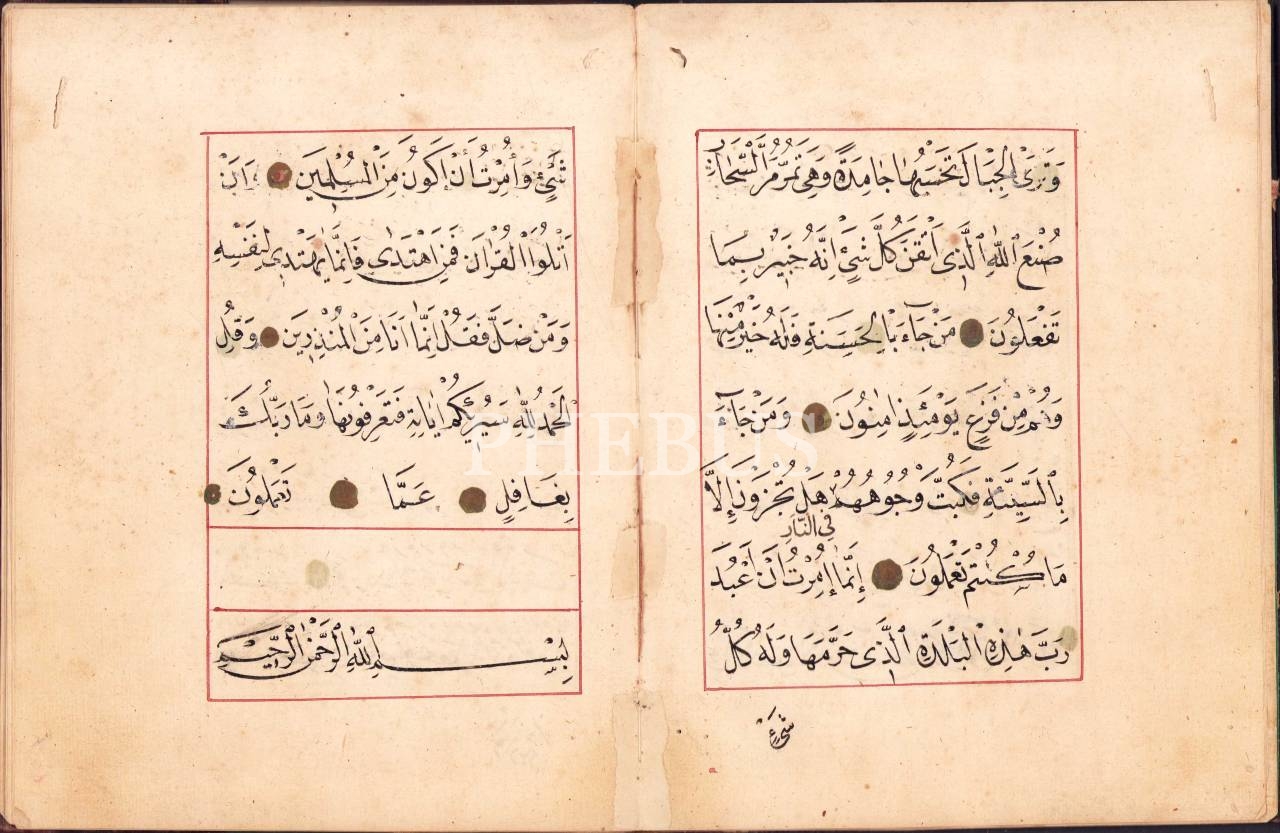 وَتَرَى الْجِبَالَ تَحْسَبُهَا جَامِدَةً وَهِيَ تَمُرُّ مَرَّ السَّحَابِ
صُنْعَ اللّٰهِ الَّذِى اَتْقَنَ كُلَّ شَىْءٍ اِنَّهُ خَبِيرٌ بِمَا
تَفْعَلُونَ مَنْ جَآءَ بِالْحَسَنَةِ فَلَهُ خَيْرٌ مِنْهَا
وَهُمْ مِنْ فَزَعٍ يَوْمَئِذٍ اٰمِنُونَ وَمَنْ جَآءَ
بِالسَّيِّئَةِ فَكُبَّتْ وُجُوهُهُمْ هَلْ تُجْزَوْنَ إِلَّا
فِى النَّارِ
مَا كُنْتُمْ تَعْمَلُونَ إِنَّمَا اُمِرْتُ اَنْ اَعْبُدَ
رَبَّ هٰذِهِ الْبَلْدَةِ الَّذِى حَرَّمَهَا وَلَهُ كُلُّ
شَىْءٍ
شَىْءٍ وَأُمِرْتُ أَنْ أَكُونَ مِنَ الْمُسْلِمِينَ وَاَنْ
اَتْلُوَا الْقُرْاٰنَ فَمَنِ اهْتَدٰى فَاِنَّمَا يَهْتَدِى لِنَفْسِهِ
وَمَنْ ضَلَّ فَقُلْ اِنَّمَا اَنَا مِنَ الْمُنْذِرِينَ وَقُلِ
الْحَمْدُ لِلّٰهِ سَيُرِيكُمْ اٰيَاتِهِ فَتَعْرِفُونَهَا وَمَا رَبُّكَ
بِغَافِلٍ عَمَّا تَعْمَلُونَ
بِسْمِ اللّٰهِ الرَّحْمٰنِ الرَّحِيمِ
PHEBUS